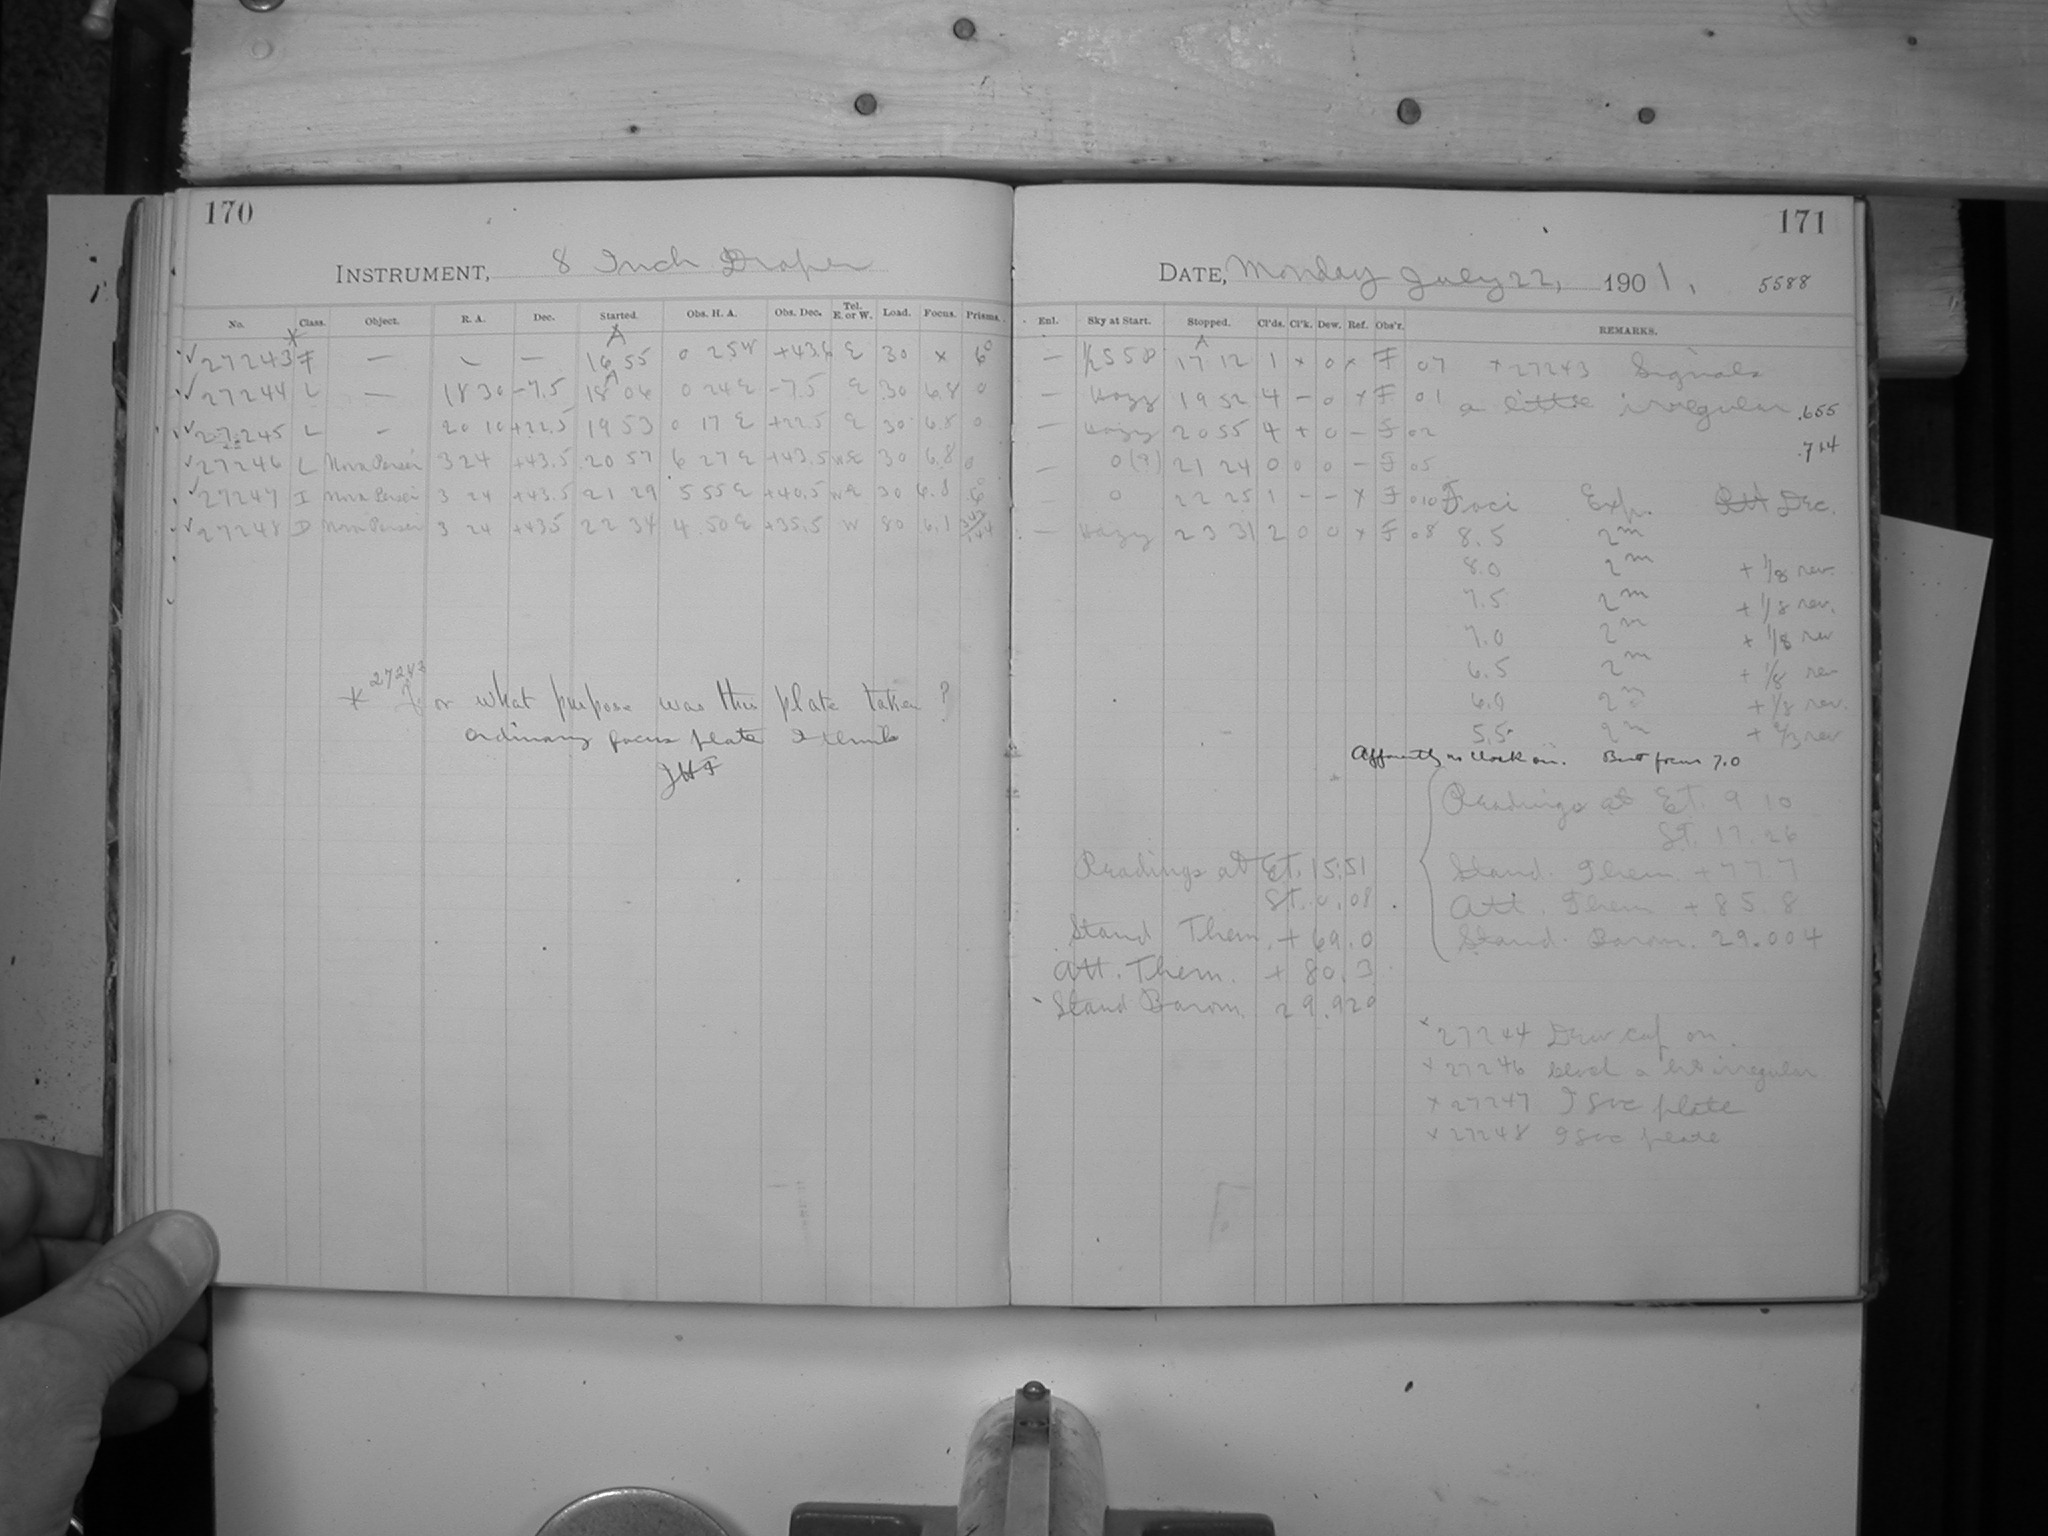 170
INSTRUMENT, 8 Inch Draper
No. Class. Object. R. A. Dec. Started. Obs. H. A. Obs. Dec. Tel. E. or W. Load. Focus. Prisms.
27243 F — — — 16 55 0 25W +43.6 E 30 x 6°
27244 L — 18 30 -7.5 18 06 0 24 E -7.5 E 30 6.8 0
27245 L - 20 10 +22.5 19 53 0 17 E +22.5 E 30 6.8 0
27246 L Nova Persei 3 24 +43.5 20 57 6 27 E +43.5 30 6.8 0
27247 I Nova Persei 3 24 +43.5 21 29 5 55 E +40.5 30 6.8
27248 D Nova Persei 3 24 +43.5 22 34 4 50 E +35.5 W 80 6.1
* 27243
For what purpose was this plate taken?
Ordinary focus plate I think
JHF
171
DATE, Monday July 22, 1901, 5588
Enl. Sky at Start. Stopped. Cl'ds. Cl'k. Dew. Ref. Obs'r. REMARKS.
— 17 12 1 x 0 x F 07 x 27243 Signals
— Hazy 19 52 4 — 0 x F 01 a little irregular .655
— Hazy 20 55 4 + 0 — F 02
.714
— 0(?) 21 24 0 0 0 — F 05
— 0 22 25 1 — — x F 010 Foci Exp. Dec.
— Hazy 23 31 2 0 0 x F 08 8.5 2m
8.0 2m + 1/8 rev.
7.5 2m + 1/8 rev.
7.0 2m + 1/8 rev
6.5 2m + 1/8 rev
6.0 2m + 1/8 rev.
5.5 2m + 2/3 rev
Apparently no clock on. Best focus 7.0
Readings at ET. 9 10
ST. 17.26
Stand. Therm. + 77.7
Att. Therm + 85.8
Stand. Barom. 29.004
Readings at ET. 15:51
ST. 0.08
Stand Therm. + 69.0
Att. Therm. + 80.3
Stand Barom. 29.920
x 27244 Dew cap on.
x 27246 a bit irregular
x 27247 I Svc plate
x 27248 I Svc plate